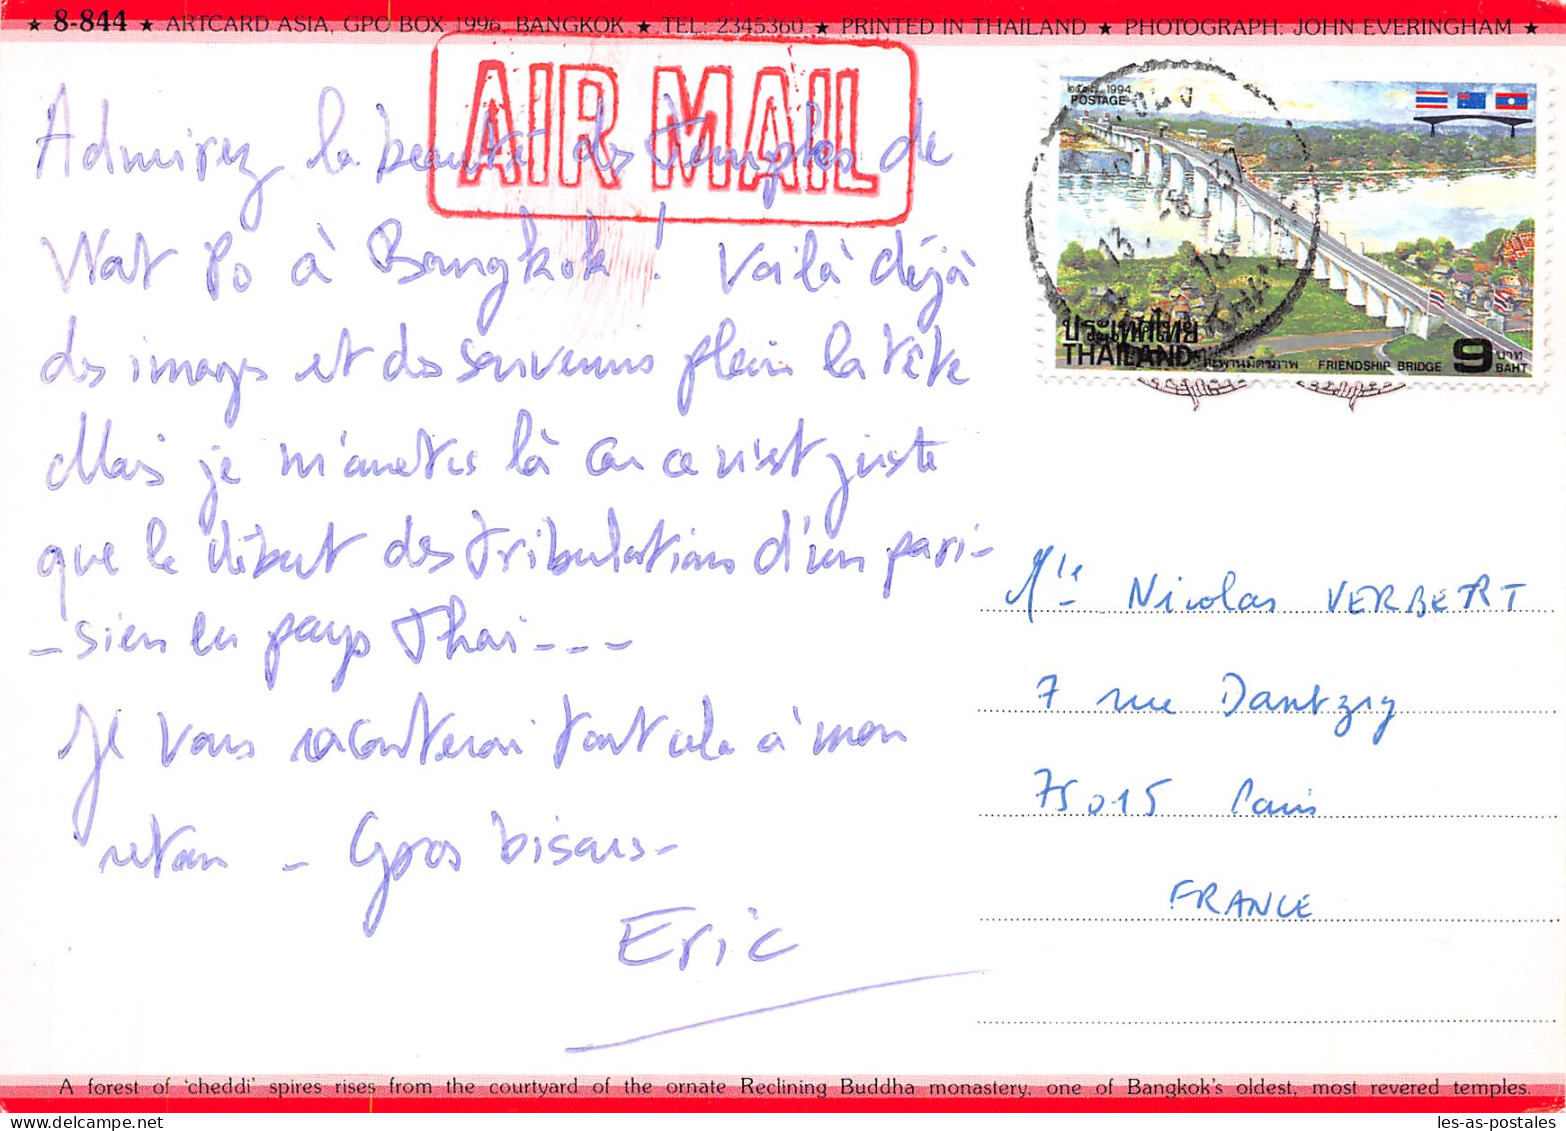 ★ 8-844 ★ ARTCARD ASIA, GPO BOX 1996, BANGKOK ★ TEL: 2345360 ★ PRINTED IN THAILAND ★ PHOTOGRAPH: JOHN EVERINGHAM ★
AIR MAIL
Admirez la beauté des Temples de
Wat Po à Bangkok ! Voilà déjà
des images et des souvenirs plein la tête
Mais je m'arrêtes là car ce n'est juste
que le début des tribulations d'un pari-
-sien en pays Thai---
Je vous raconterai tout cela à mon
retour - Gros bisous-
Eric
๒๕๓๗, 1994
POSTAGE
ประเทศไทย
THAILAND
สะพานมิตรภาพ FRIENDSHIP BRIDGE 9 บาท BAHT
Nicolas VERBERT
7 rue Dantzig
75015 Paris
FRANCE
A forest of 'cheddi' spires rises from the courtyard of the ornate Reclining Buddha monastery, one of Bangkok's oldest, most revered temples.
les-as-postales